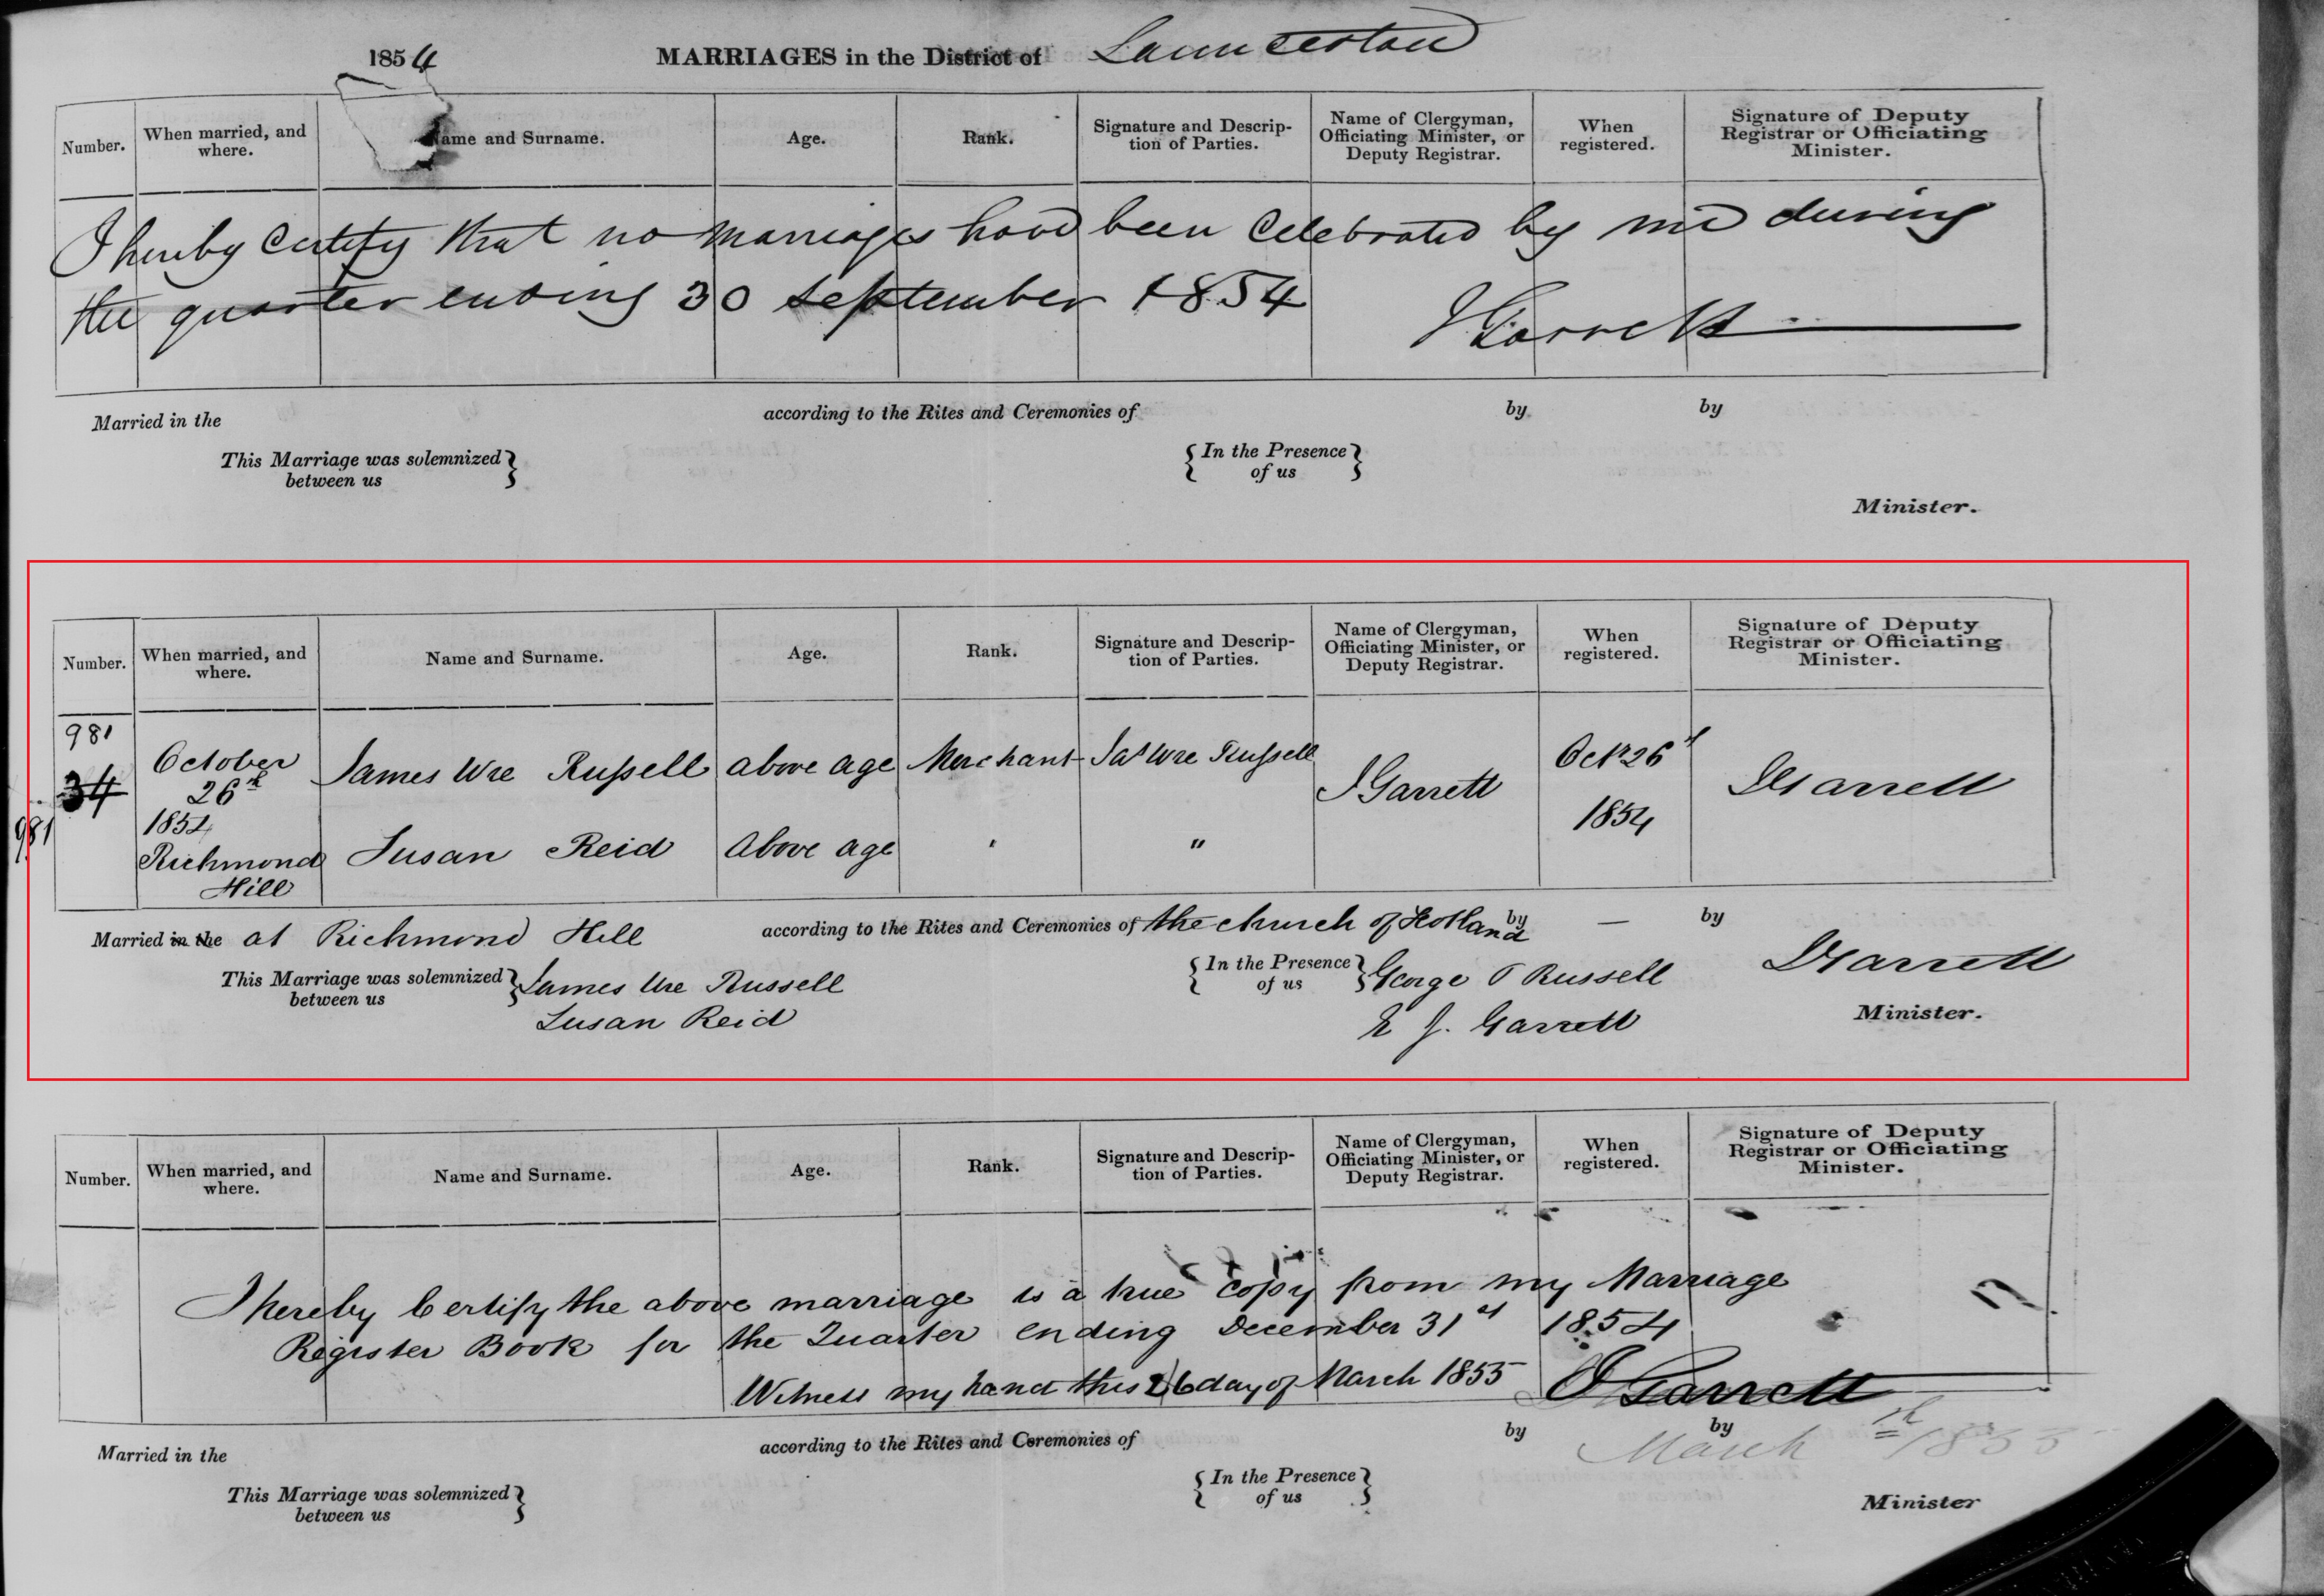 1854 MARRIAGES in the District of Launceston
Number. When married, and where. Name and Surname. Age. Rank. Signature and Description of Parties. Name of Clergyman, Officiating Minister, or Deputy Registrar. When registered. Signature of Deputy Registrar or Officiating Minister.
I hereby Certify that no marriages have been Celebrated by me during
the quarter ending 30 September 1854
J Garrett
Married in the according to the Rites and Ceremonies of by by
This Marriage was solemnized between us } { In the Presence of us }
Minister.
Number. When married, and where. Name and Surname. Age. Rank. Signature and Description of Parties. Name of Clergyman, Officiating Minister, or Deputy Registrar. When registered. Signature of Deputy Registrar or Officiating Minister.
981
34
981
October
26th
1854
Richmond
Hill
James Ure Russell above age Merchant Jas Ure Russell
Susan Reid Above age "
J Garrett
Octr 26th
1854
J Garrett
Married in the at Richmond Hill according to the Rites and Ceremonies of the church of Scotland by — by
This Marriage was solemnized between us } James Ure Russell { In the Presence of us } George Russell J Garrett
Susan Reid E J. Garrett Minister.
Number. When married, and where. Name and Surname. Age. Rank. Signature and Description of Parties. Name of Clergyman, Officiating Minister, or Deputy Registrar. When registered. Signature of Deputy Registrar or Officiating Minister.
I hereby Certify the above marriage is a true copy from my Marriage
Register Book for the Quarter ending December 31st 1854
Witness my hand this 26 day of March 1855 J Garrett
Married in the according to the Rites and Ceremonies of by by
March 1855
This Marriage was solemnized between us } { In the Presence of us }
Minister